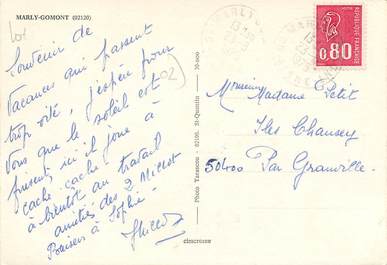 MARLY-GOMONT (02120)
Souvenir de
Vacances qui passent
trop vite, j'espère pour
Vous que le soleil est
présent, ici il joue à
cache cache
à bientôt au travail
amitiés des 2 Millot
Baisers à Sophie
02
30-900
Photo Tarmoom - 02100, St-Quentin
cimcrome
MARLY
0,80
Monsieur Madame Petit
Iles Chausey
50400 Par Granville